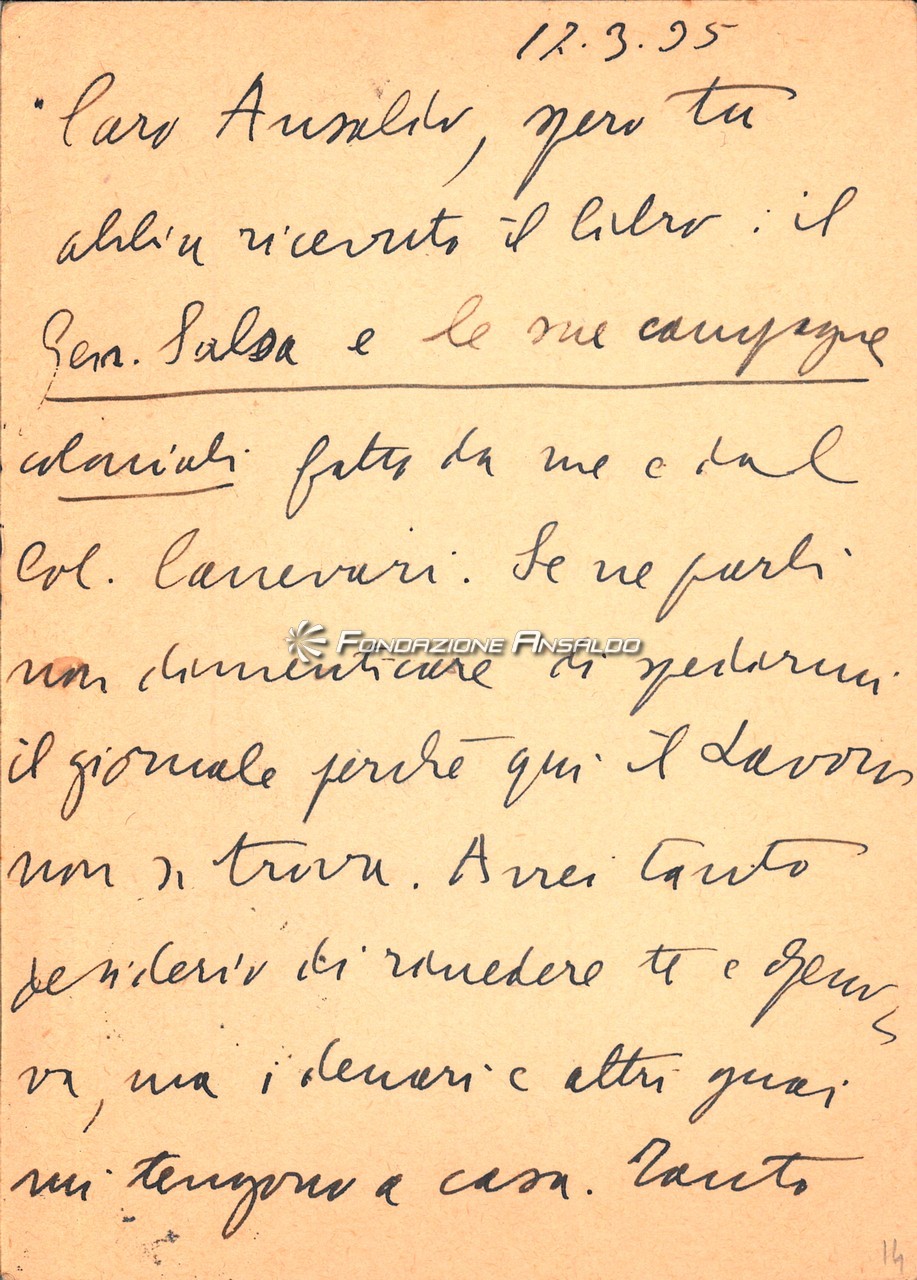 12.3.35
"Caro Ansaldo, spero tu
abbia ricevuto il libro: il
Gen. Salsa e le sue campagne
coloniali fatto da me e dal
Col. Canevari. Se ne parli
FONDAZIONE ANSALDO
non dimenticare di spedirmi
il giornale perchè qui il Lavoro
non si trova. Avrei tanto
desiderio di rivedere te e Geno-
va, ma i denari e altri guai
mi tengono a casa. Tanto
14